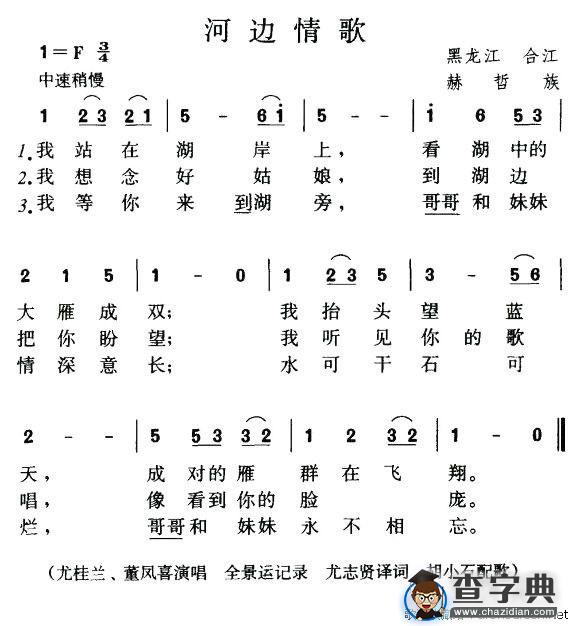 河边情歌
1=F 3/4
黑龙江 合江
中速稍慢
赫哲族
1 2 3 2 1 | 5 - 6 i | 5 - - | i 6 5 3 |
1.我 站 在 湖 岸 上， 看 湖 中的
2.我 想 念 好 姑 娘， 到 湖 边
3.我 等 你 来 到湖 旁， 哥哥 和 妹妹
2 1 5 | 1 - 0 | 1 2 3 5 | 3 - 5 6 |
大 雁 成 双； 我 抬 头 望 蓝
把 你 盼 望； 我 听 见 你 的 歌
情 深 意 长； 水 可 干 石 可
2 - - | 5 5 3 3 2 | 1 2 3 2 | 1 - 0 ‖
天， 成 对的 雁 群 在 飞 翔。
唱， 像 看到 你的 脸 庞。
烂， 哥哥 和 妹妹 永 不 相 忘。
（尤桂兰、董凤喜演唱 全景运记录 尤志贤译词 胡小石配歌）
查字典
www.chazidian.com